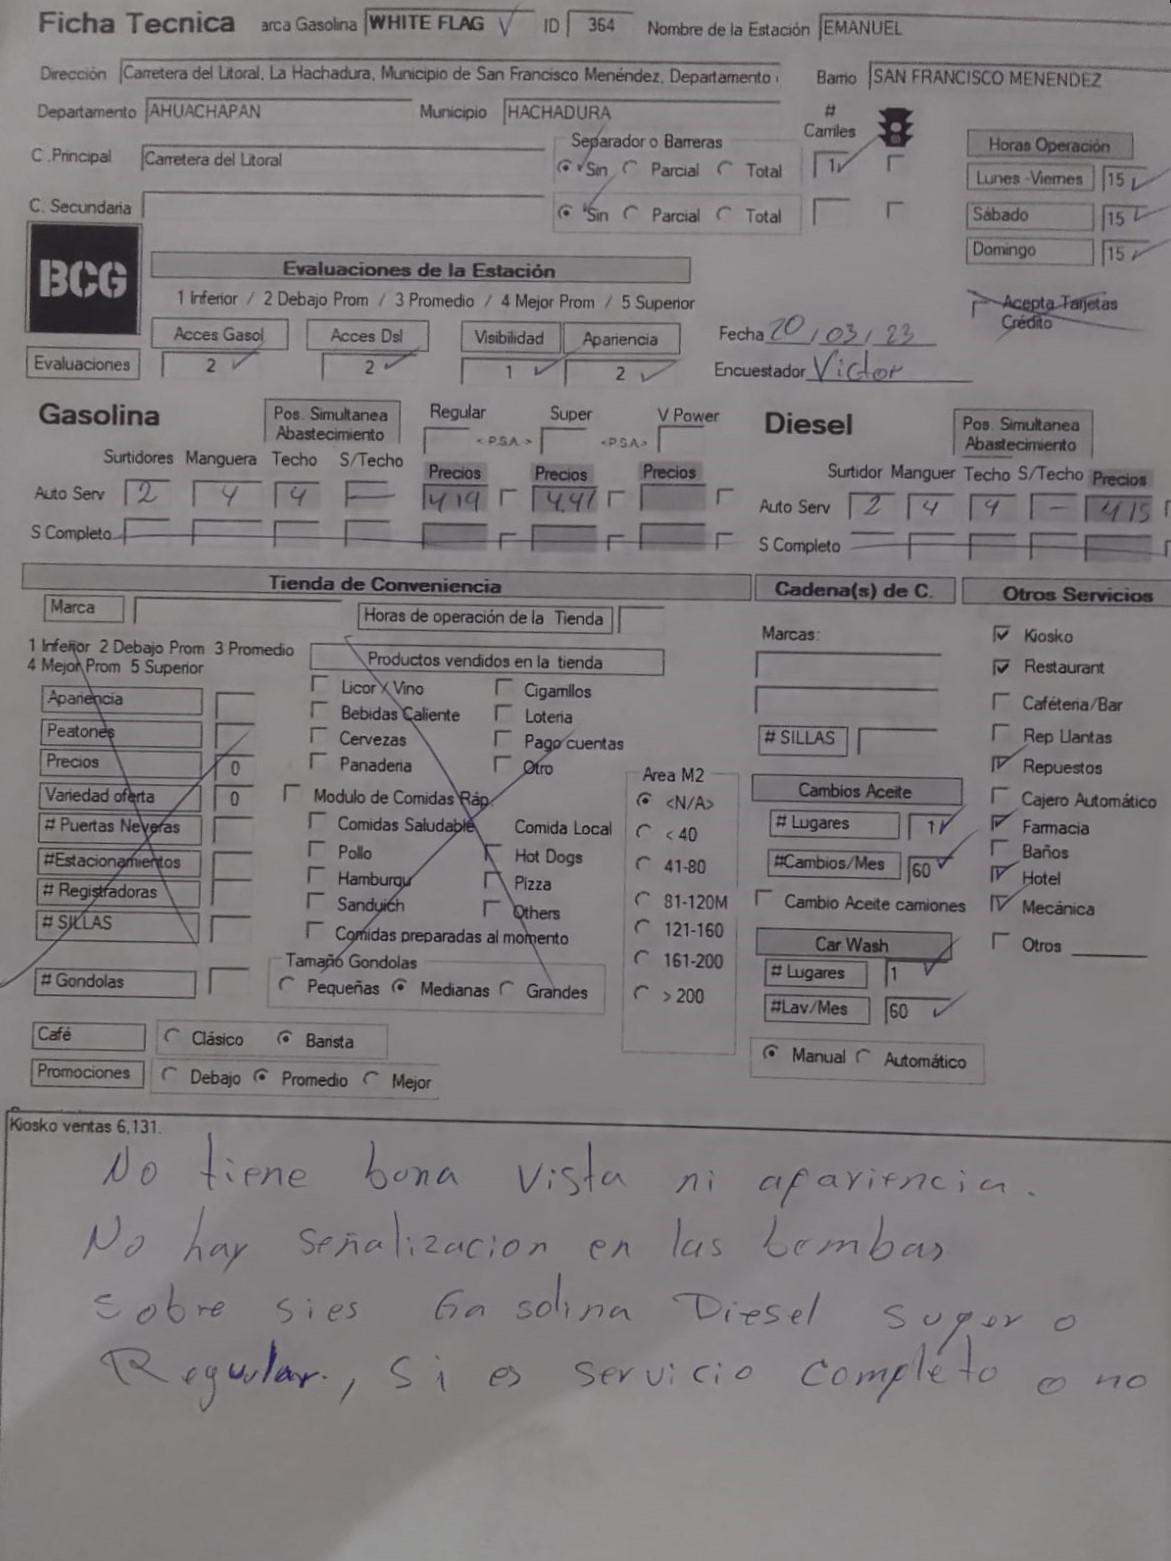 Ficha Tecnica arca Gasolina WHITE FLAG ID 364 Nombre de la Estación EMANUEL
Dirección Carretera del Litoral, La Hachadura, Municipio de San Francisco Menéndez, Departamento Barrio SAN FRANCISCO MENENDEZ
Departamento AHUACHAPAN Municipio HACHADURA # Carriles
C .Principal Carretera del Litoral Separador o Barreras Sin Parcial Total 1
C. Secundaria Sin Parcial Total
Horas Operación
Lunes -Viernes 15
Sábado 15
Domingo 15
Acepta Tarjetas Crédito
BCG
Evaluaciones de la Estación
1 Inferior / 2 Debajo Prom / 3 Promedio / 4 Mejor Prom / 5 Superior
Acces Gasol Acces Dsl Visibilidad Apariencia
Evaluaciones 2 2 1 2
Fecha 20/03/23
Encuestador Victor
Gasolina Pos. Simultanea Abastecimiento Regular <P.S.A.> Super <P.S.A.> V Power
Surtidores Manguera Techo S/Techo Precios Precios Precios
Auto Serv 2 4 4 — 419 4.41
S Completo
Diesel Pos. Simultanea Abastecimiento
Surtidor Manguer Techo S/Techo Precios
Auto Serv 2 4 4 - 415
S Completo
Tienda de Conveniencia
Marca Horas de operación de la Tienda
1 Inferior 2 Debajo Prom 3 Promedio
4 Mejor Prom 5 Superior
Apariencia
Peatones
Precios 0
Variedad oferta 0
# Puertas Neveras
#Estacionamientos
# Registradoras
# SILLAS
# Gondolas
Productos vendidos en la tienda
Licor y Vino Cigarrillos
Bebidas Caliente Loteria
Cervezas Pago cuentas
Panaderia Otro
Modulo de Comidas Ráp.
Comidas Saludable Comida Local
Pollo Hot Dogs
Hamburgu Pizza
Sanduich Others
Comidas preparadas al momento
Tamaño Gondolas
Pequeñas Medianas Grandes
Area M2
<N/A>
< 40
41-80
81-120M
121-160
161-200
> 200
Café Clásico Barista
Promociones Debajo Promedio Mejor
Cadena(s) de C.
Marcas:
# SILLAS
Cambios Aceite
# Lugares 1
#Cambios/Mes 60
Cambio Aceite camiones
Car Wash
# Lugares 1
#Lav/Mes 60
Manual Automático
Otros Servicios
Kiosko
Restaurant
Caféteria/Bar
Rep Llantas
Repuestos
Cajero Automático
Farmacia
Baños
Hotel
Mecánica
Otros
Kiosko ventas 6,131.
No tiene bona vista ni apariencia.
No hay señalizacion en las bombas
sobre sies Gasolina Diesel super o
Regular., si es servicio completo o no